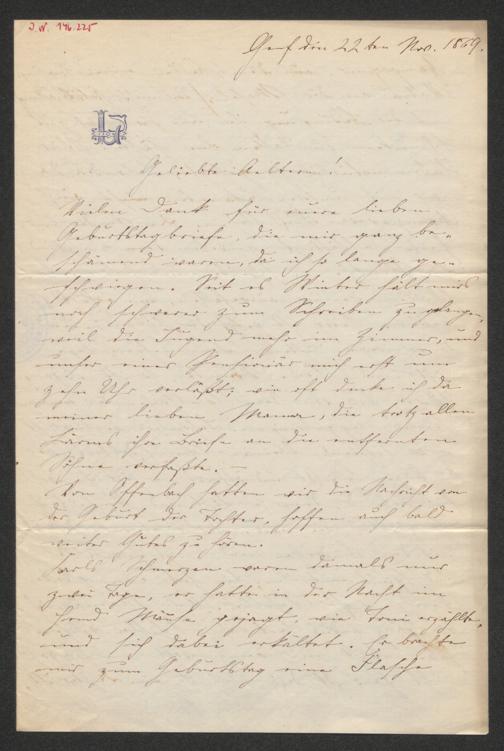 I. N. 146.225
Genf den 22ten Nov. 1869.
Geliebte Aeltern!
Vielen Dank für euere lieben
Geburtstagbriefe, die mir ganz be-
schämend waren, da ich so lange ge-
schwiegen. Seit es Winter hält mirs
noch schwerer zum Schreiben zu gelangen,
weil die Jugend mehr im Zimmer, und
unser einer Pensionär mich erst um
zehn Uhr verläßt; wie oft denke ich da
meiner lieben Mama, die trotz allen
Lärms ihre Briefe an die entfernten
Söhne verfaßte. –
Von Offenbach hatten wir die Nachricht von
der Geburt der Tochter, hoffen auch bald
weiter Gutes zu hören.
Karls Schmerzen waren damals nur
zwei Tage, er hatte in der Nacht im
Hemd Mäuse gejagt, wie Toni erzählte,
und sich dabei erkältet. Er brachte
mir zum Geburtstag eine Flasche